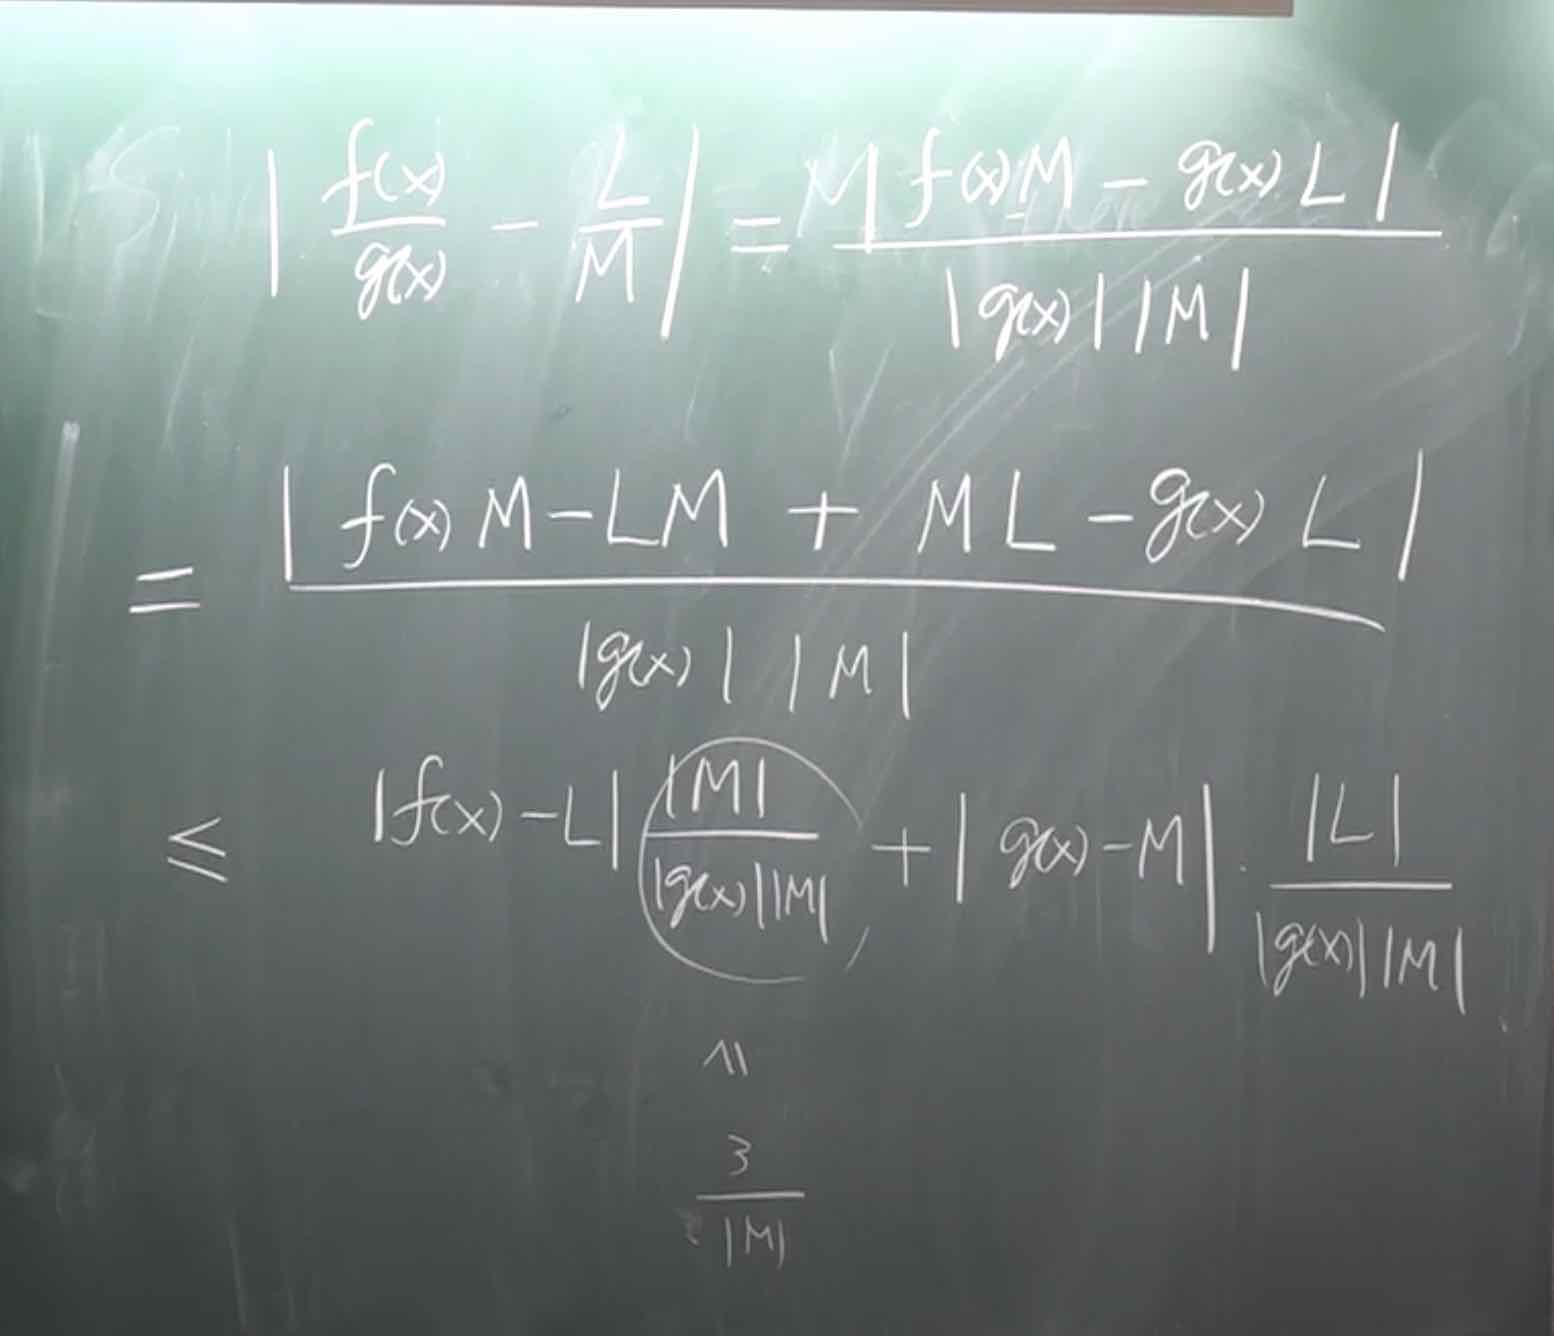 | f(x)/g(x) − L/M | = | f(x)M − g(x)L | / |g(x)||M|
= | f(x)M − LM + ML − g(x)L | / |g(x)||M|
≤ |f(x) − L| |M| / |g(x)||M| + |g(x) − M| · |L| / |g(x)||M|
≤
3 / |M|